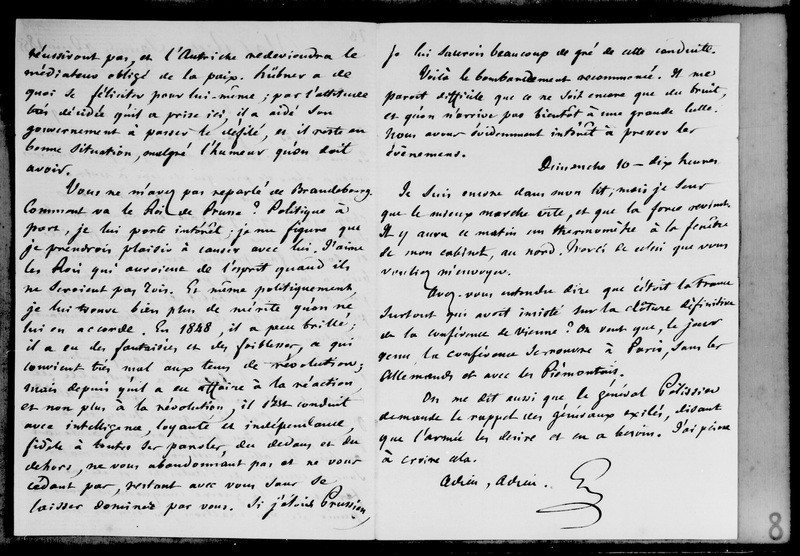 réussiront pas, et l'Autriche redeviendra le
médiateur obligé de la paix. Hübner a de
quoi se féliciter pour lui-même ; par l'attitude
très décidée qu'il a prise ici, il a aidé son
gouvernement à passer le défilé, et il reste en
bonne situation, malgré l'humeur qu'on doit
avoir.
Vous ne m'avez pas reparlé de Brandebourg.
Comment va le Roi de Prusse ? Politique à
part, je lui porte intérêt ; je me figure que
je prendrois plaisir à causer avec lui. J'aime
les Rois qui auroient de l'esprit quand ils
ne seroient pas rois. Et même politiquement,
je lui trouve bien plus de mérite qu'on ne
lui en accorde. En 1848, il a peu brillé ;
il a eu des fantaisies et des foiblesses, ce qui
convient très mal aux tems de révolution ;
mais depuis qu'il a eu affaire à la réaction,
et non plus à la révolution, il s'est conduit
avec intelligence, loyauté et indépendance,
fidèle à toutes ses paroles, du dedans et du
dehors, ne vous abandonnant pas et ne vous
cédant pas, restant avec vous sans se
laisser dominer par vous. Si j'étois Prussien,
je lui saurois beaucoup de gré de cette conduite.
Voilà le bombardement recommencé. Il me
paroit difficile que ce ne soit encore que du bruit,
et qu'on n'arrive pas bientôt à une grande lutte.
Nous avons évidemment intérêt à presser les
évènemens.
Dimanche 10 - dix heures
Je suis encore dans mon lit, mais je sens
que le mieux marche vite, et que la force revient.
Il y aura ce matin un thermomètre à la fenêtre
de mon cabinet, au nord. Merci de celui que vous
vouliez m'envoyer.
Avez-vous entendu dire que c'étoit la France
surtout qui avoit insisté sur la clôture définitive
de la conférence de Vienne ? On veut que, le jour
venu, la conférence se rouvre à Paris, sans les
Allemands et avec les Piémontais.
On me dit aussi que le général Pélissier
demande le rappel des généraux exilés, disant
que l'armée les désire et en a besoin. J'ai peine
à croire cela.
Adieu, Adieu.
8